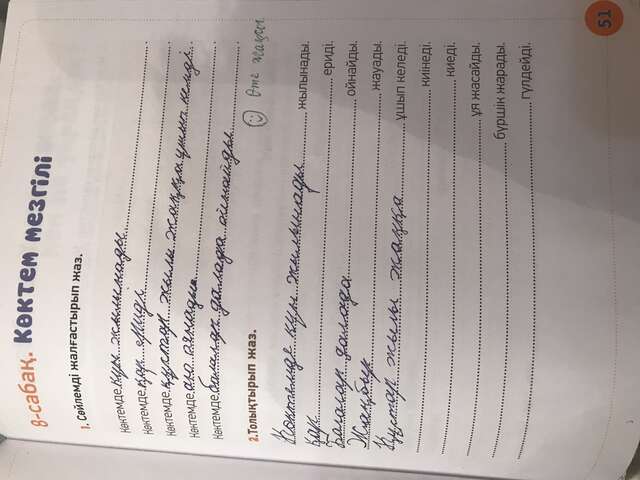 8-сабақ. Көктем мезгілі
1. Сөйлемді жалғастырып жаз.
Көктемде күн жылынады
Көктемде қар ериді
Көктемде құстар жылы жаққа ұшып келеді.
Көктемде аю оянады
Көктемде балалар далада ойнайды
2.Толықтырып жаз.
Өте жақсы
Көктемде күн жылынады жылынады.
Қар ериді.
Балалар далада ойнайды.
Жаңбыр жауады.
Құстар жылы жаққа ұшып келеді.
киінеді.
киеді.
ұя жасайды.
бүршік жарады.
гүлдейді.
51